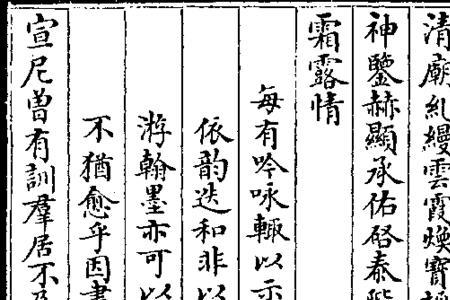 清廟乣縵雲霞煥寶
神鑒赫顯承佑啓泰
霜露情
每有吟咏輙以示
依韵迭和非以
游翰墨亦可以
不猶愈乎因書
宣尼曾有訓羣居不及